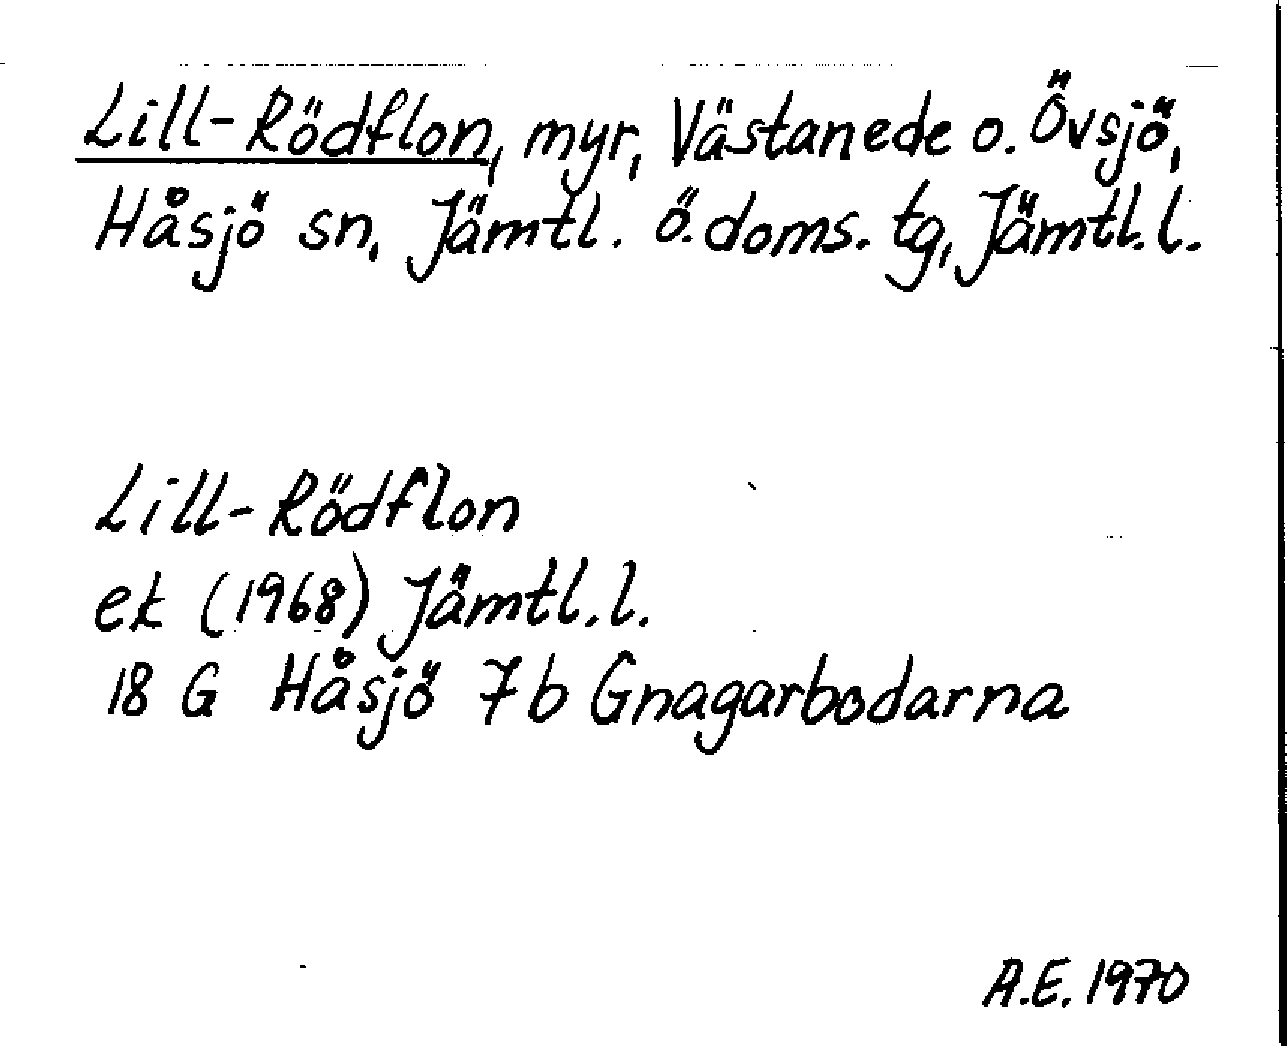 Lill-Rödflon, myr, Västanede o. Övsjö,
Håsjö sn, Jämtl. ö. doms. tg, Jämtl. l.
Lill-Rödflon
ek (1968) Jämtl. l.
18 G Håsjö 7b Gnagarbodarna
A.E. 1970